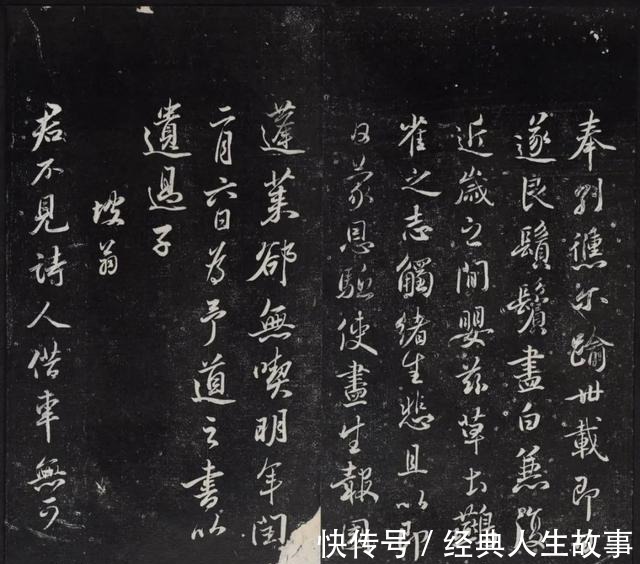 奉別儵尔踰卅載即
遂良鬚鬢盡白兼復
近歲之間嬰茲草土鷰
雀之志觸緒生悲且以即
日蒙恩驅使盡生報國
蓬萊卻無喫明年閏
二月六日為予道之書以
遺過子
坡翁
君不見詩人借車無可
快传号/经典人生故事